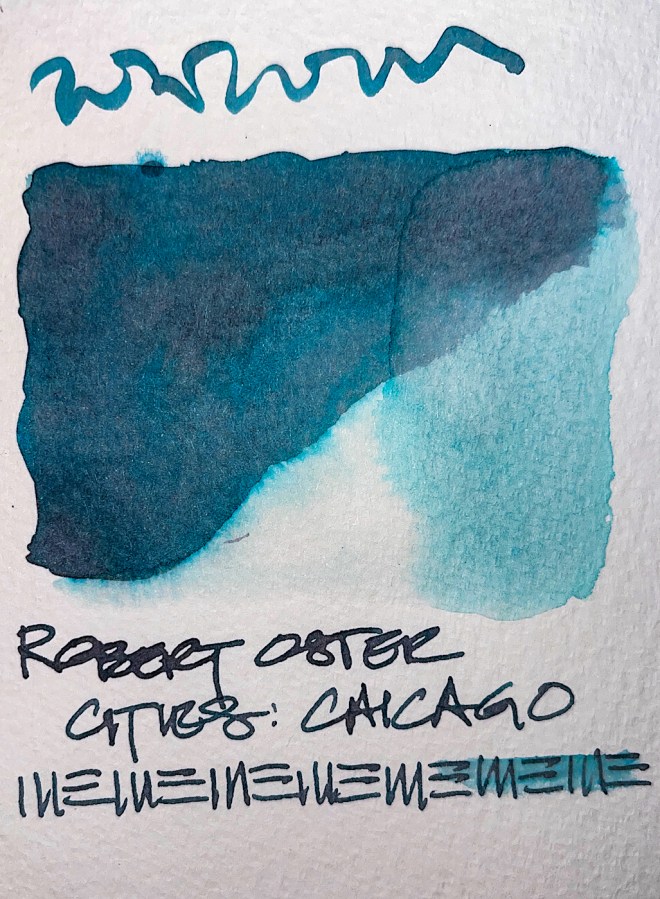 ROBERT OSTER
CITIES: CHICAGO